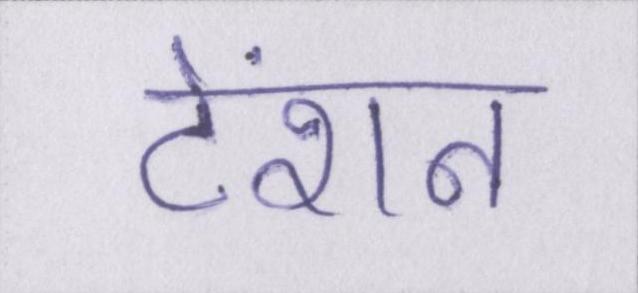 टेंशन